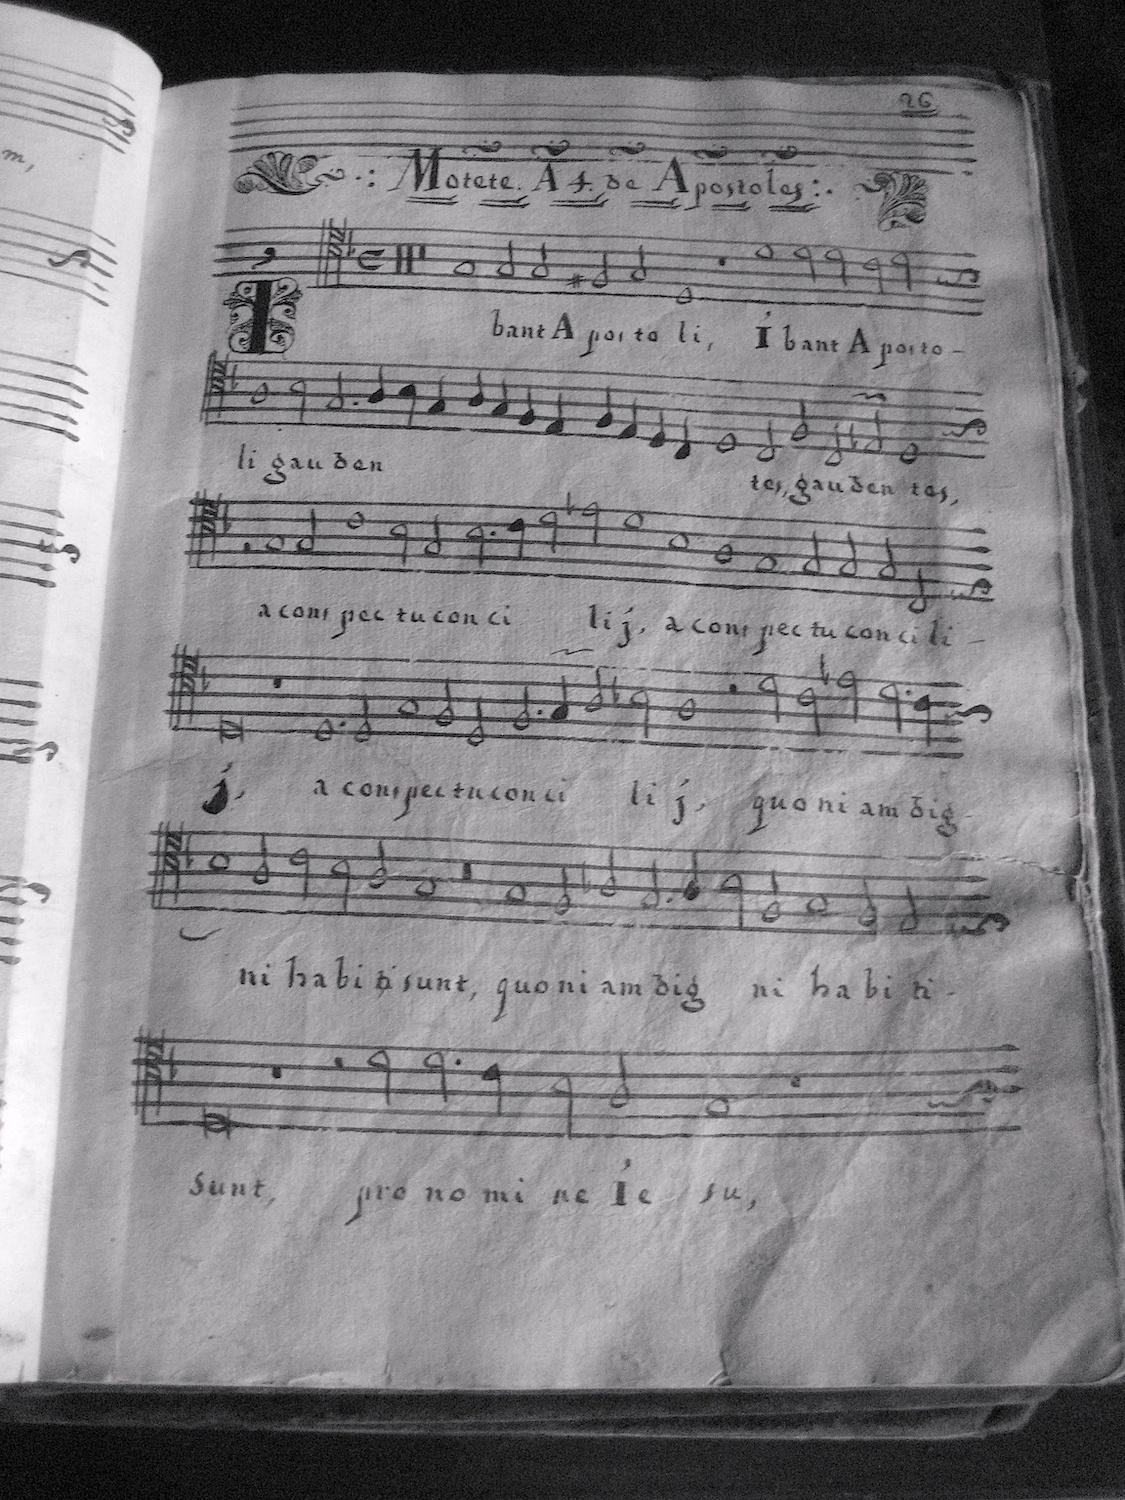 26
m,
.: Motete. A 4. de Apostoles :.
I bant A pos to li, I bant A posto-
li gau den tes, gau den tes,
a cons pec tu con ci li j, a cons pec tu con ci li -
j, a cons pec tu con ci li j, quo ni am dig-
ni ha bi ti sunt, quo ni am dig ni ha bi ti -
sunt, pro no mi ne Ie su,